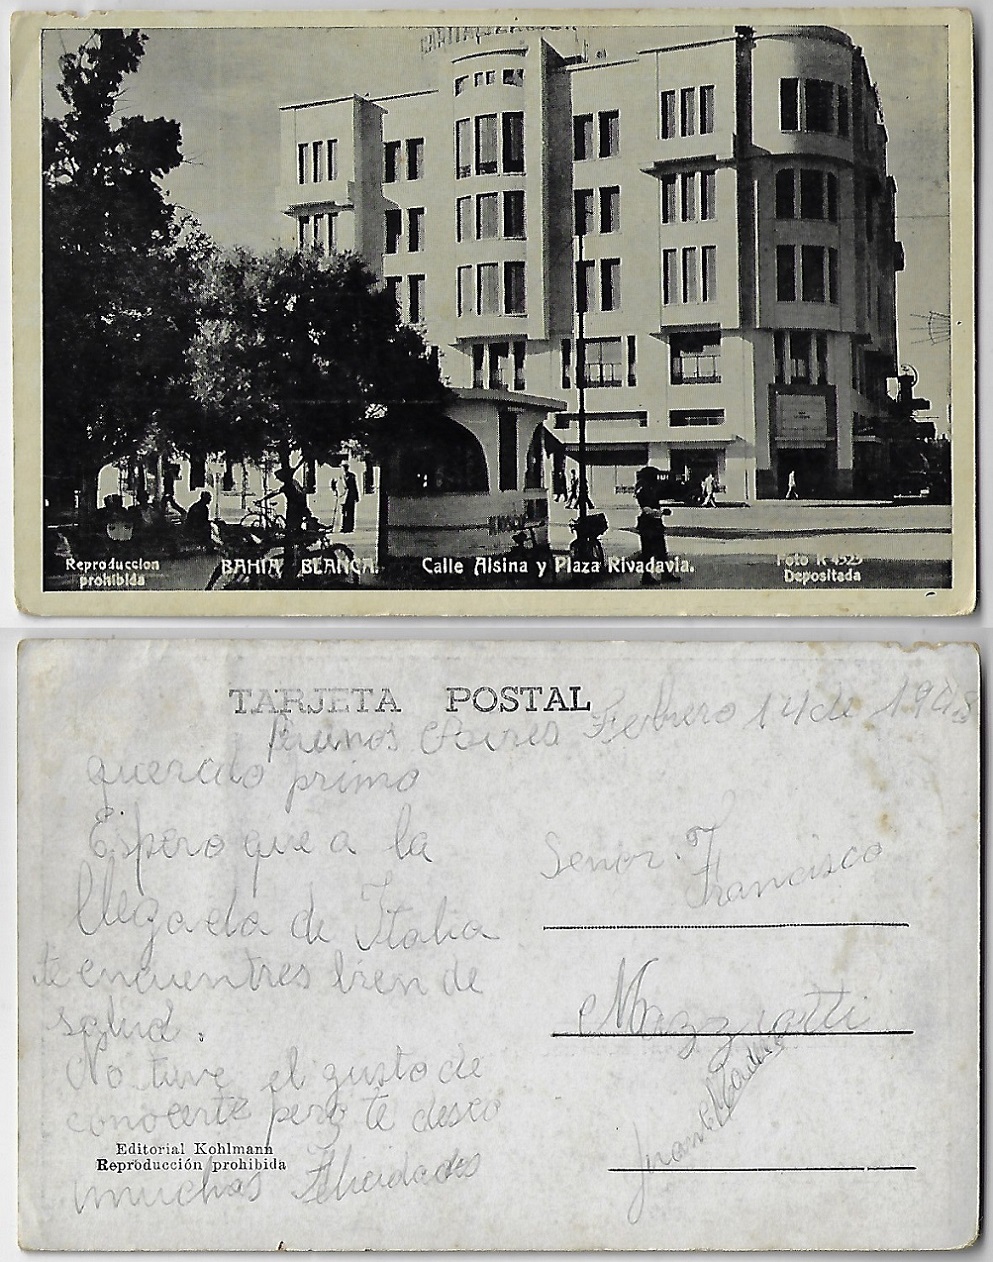 CAPITALIZACION
Reproduccion
prohibida
BAHIA BLANCA.
Calle Alsina y Plaza Rivadavia.
Foto K 4529
Depositada
TARJETA POSTAL
Buenos Aires Febrero 14 de
querido primo
Espero que a la
llegada de Italia
te encuentres bien de
salud.
No tuve el gusto de
conocerte pero te deseo
muchas Felicidades
Editorial Kohlmann
Reproducción prohibida
Senor. Francisco
Juan